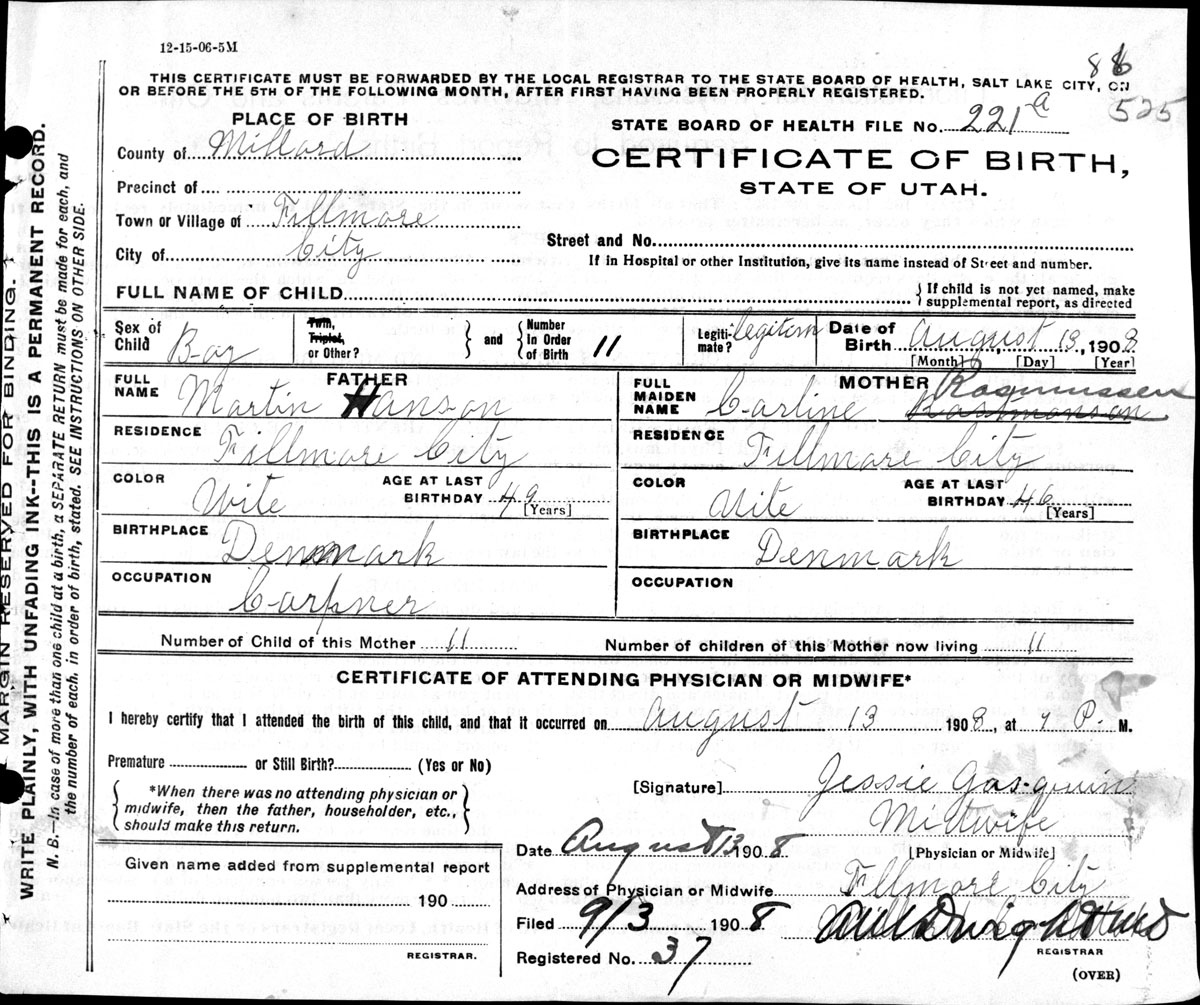 12-15-06-5M
THIS CERTIFICATE MUST BE FORWARDED BY THE LOCAL REGISTRAR TO THE STATE BOARD OF HEALTH, SALT LAKE CITY, ON
OR BEFORE THE 5TH OF THE FOLLOWING MONTH, AFTER FIRST HAVING BEEN PROPERLY REGISTERED.
525
PLACE OF BIRTH
County of Millard
Precinct of
Town or Village of Fillmore
City of City
STATE BOARD OF HEALTH FILE No. 221 a
CERTIFICATE OF BIRTH,
STATE OF UTAH.
Street and No.
If in Hospital or other Institution, give its name instead of Street and number.
FULL NAME OF CHILD
If child is not yet named, make
supplemental report, as directed
Sex of Child Boy
Twin, Triplet, or Other?
and
Number In Order of Birth 11
Legiti-mate? legitism
Date of Birth August 13, 1908
[Month] [Day] [Year]
FATHER
FULL NAME Martin Hanson
RESIDENCE Fillmore City
COLOR Wite
AGE AT LAST BIRTHDAY 49
[Years]
BIRTHPLACE Denmark
OCCUPATION Carpner
MOTHER
FULL MAIDEN NAME Carline Rasmussen
RESIDENCE Fillmore City
COLOR Uite
AGE AT LAST BIRTHDAY 46
[Years]
BIRTHPLACE Denmark
OCCUPATION
Number of Child of this Mother 11
Number of children of this Mother now living 11
CERTIFICATE OF ATTENDING PHYSICIAN OR MIDWIFE*
I hereby certify that I attended the birth of this child, and that it occurred on August 13 1908, at 7 P. M.
Premature or Still Birth? (Yes or No)
*When there was no attending physician or
midwife, then the father, householder, etc.,
should make this return.
[Signature] Jessie
Mitwife
[Physician or Midwife]
Date August 13 1908
Address of Physician or Midwife Fillmore City
Filed 9/3 1908
REGISTRAR
Registered No. 37
(OVER)
Given name added from supplemental report
190
REGISTRAR.
MARGIN RESERVED FOR BINDING.
WRITE PLAINLY, WITH UNFADING INK--THIS IS A PERMANENT RECORD.
N. B.—In case of more than one child at a birth, a SEPARATE RETURN must be made for each, and
the number of each, in order of birth, stated. SEE INSTRUCTIONS ON OTHER SIDE.